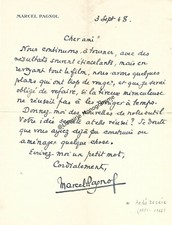 MARCEL PAGNOL
3 Sept 48.
Cher ami
Nous continuons à tourner, avec des
résultats souvent étincelants, mais en
revoyant tout le film, nous avons quelques
plans qui ont trop de rouge, et que je serai
obligé de refaire, si la liqueur miraculeuse
ne réussit pas à les corriger à temps.
Donnez moi des nouvelles de notre outil.
Votre idée a-t-elle réussi ? Je
que vous ayez déjà pu construire ou
aménager quelque chose.
Ecrivez moi un petit mot,
Cordialement,
Marcel Pagnol